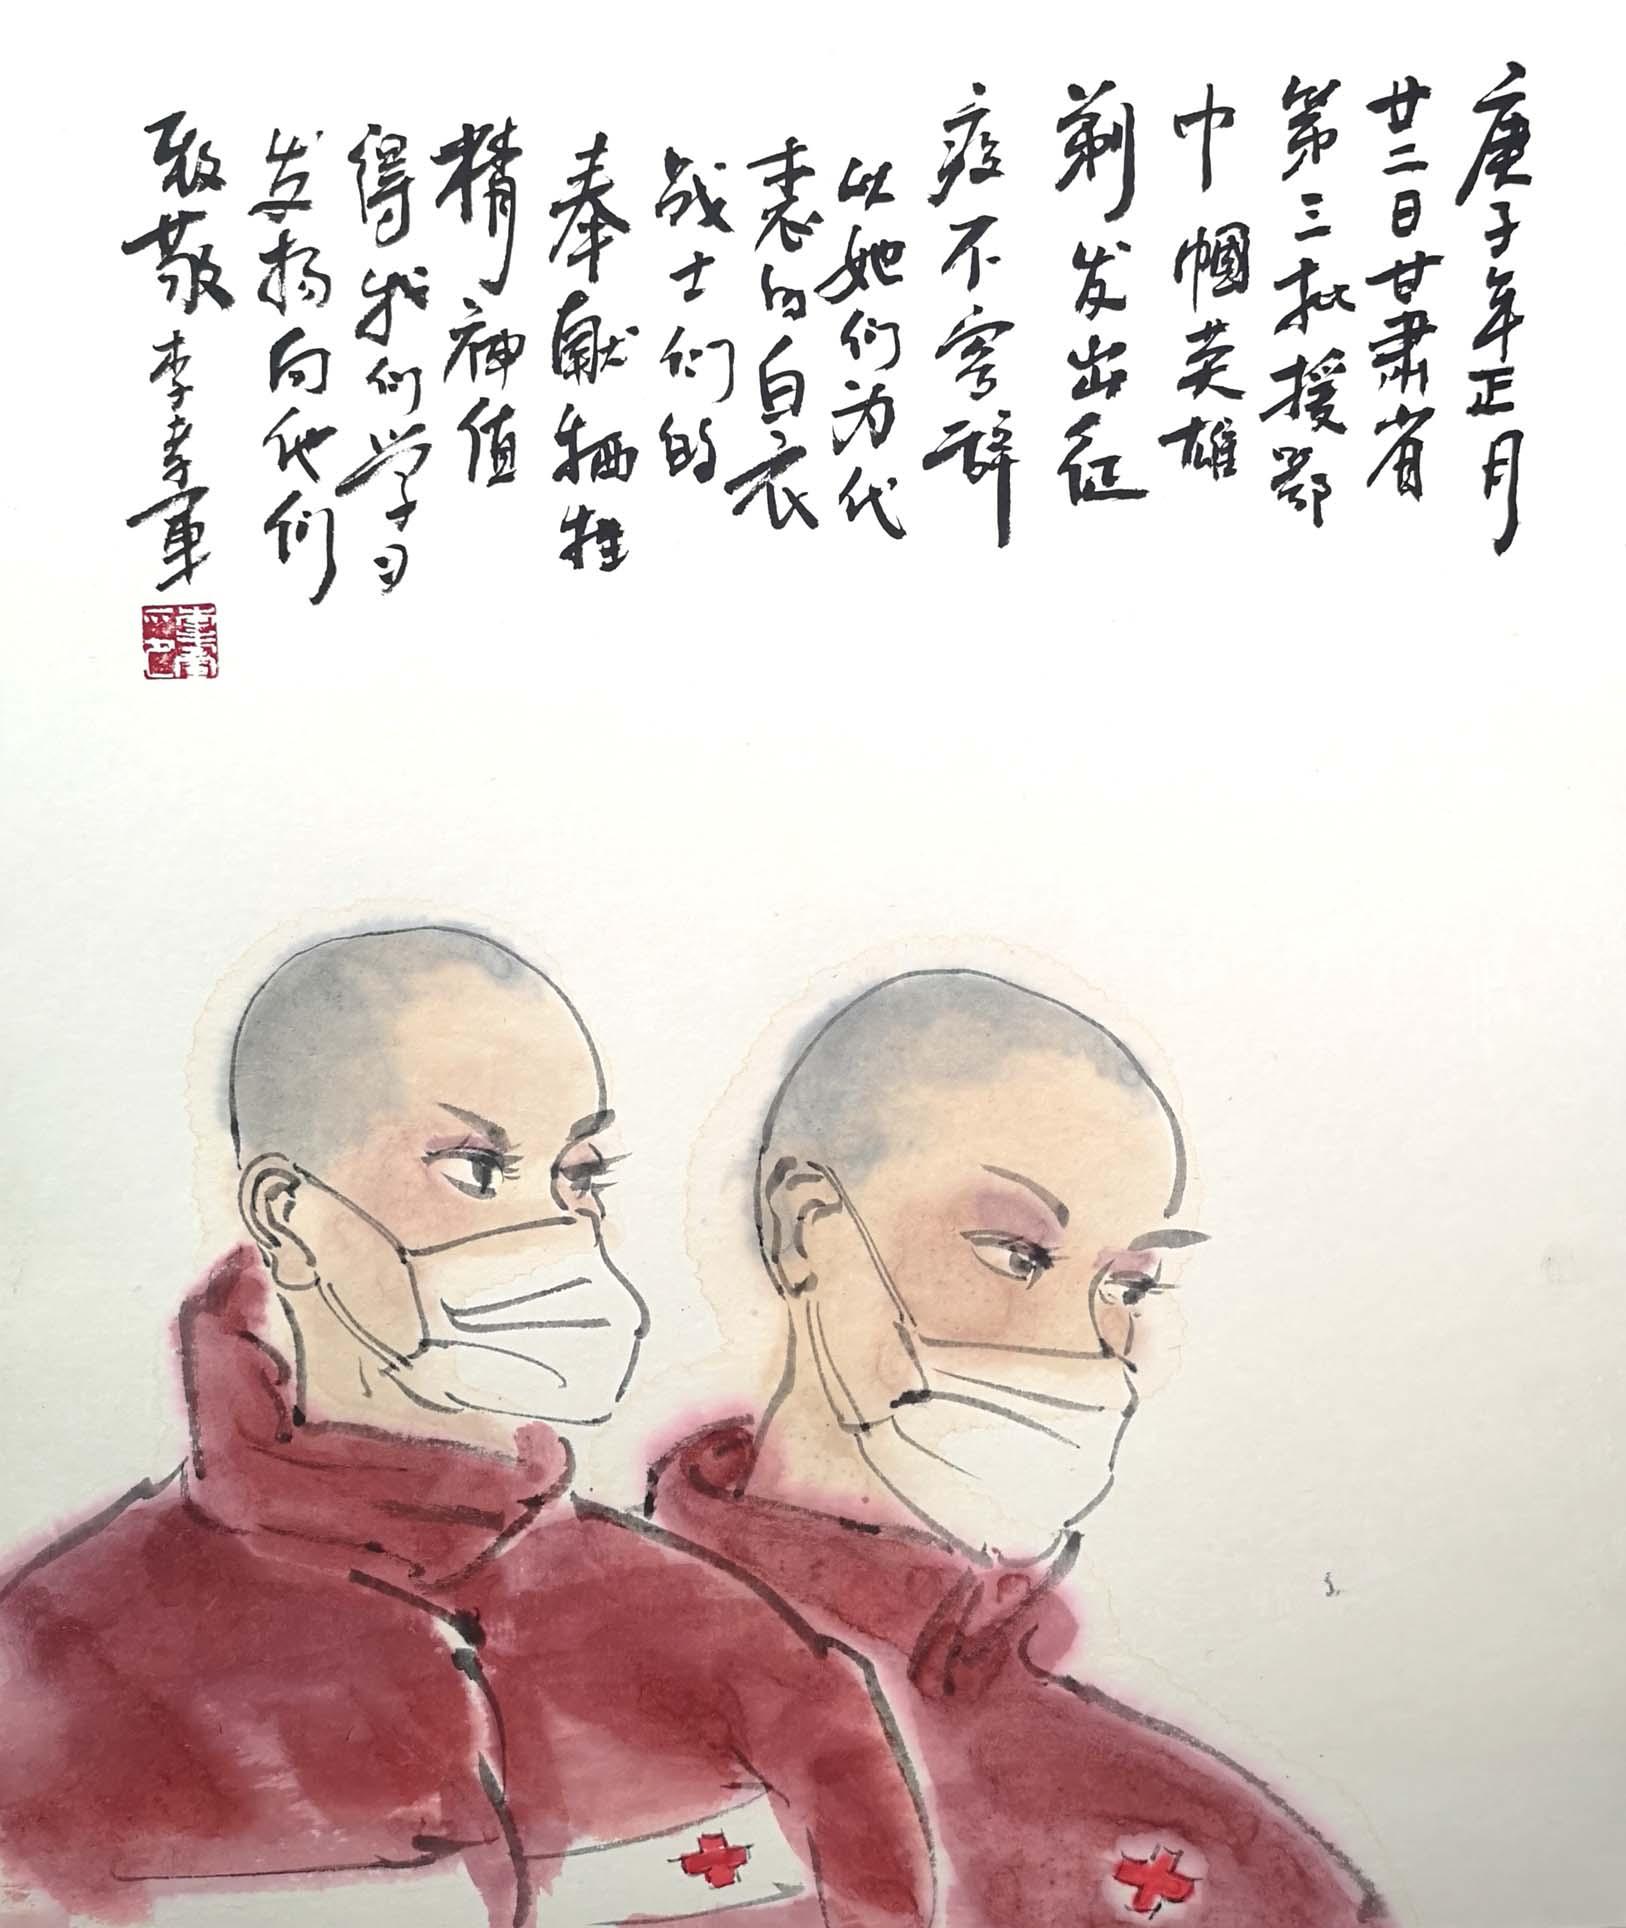 庚子年正月
廿二日甘肃省
第三批援鄂
巾帼英雄
剃发出征
疫不容辞
以她们为代
表的白衣
战士们的
奉献牺牲
精神值
得我们学习
发扬向他们
致敬 李孝军